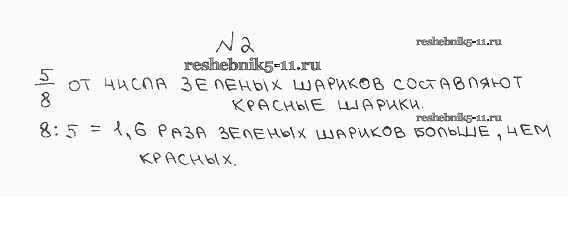 N2
reshebnik5-11.ru
reshebnik5-11.ru
5/8 ОТ ЧИСЛА ЗЕЛЕНЫХ ШАРИКОВ СОСТАВЛЯЮТ
КРАСНЫЕ ШАРИКИ.
reshebnik5-11.ru
8:5 = 1,6 РАЗА ЗЕЛЕНЫХ ШАРИКОВ БОЛЬШЕ, ЧЕМ
КРАСНЫХ.